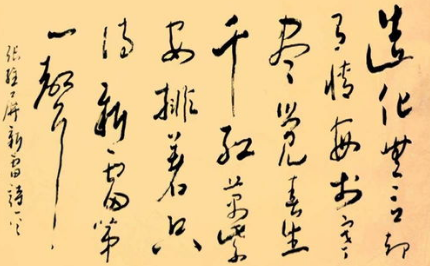 造化無言却
有情每於寒
盡覺春生
千紅萬紫
安排著只
待新雷第
一聲
張維屏新雷詩一首